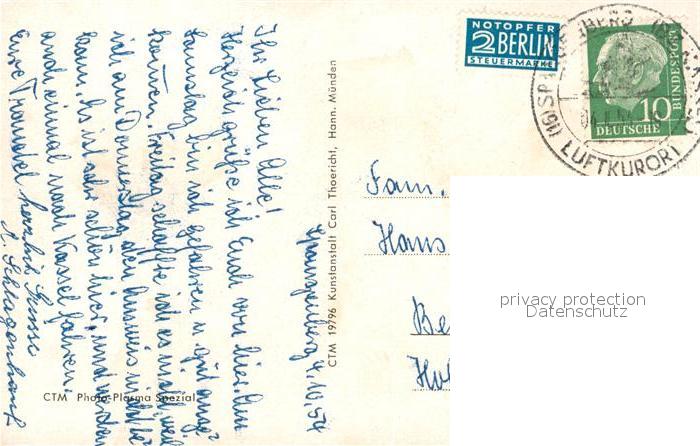 NOTOPFER
2 BERLIN
STEUERMARKE
(16) SPANGENBERG
LUFTKURORT
10
DEUTSCHE
BUNDESPOST
Spangenberg 4.10.54
Ihr Lieben Alle!
Herzlich grüße ich Euch von hier. Am
Samstag bin ich gefahren u. gut ange-
kommen. Freitag schaffte ich es nicht, weil
ich am Donnerstag den
kam. Es ist sehr schön hier, und werden
auch einmal nach Kassel fahren.
Eure Trautel herzliche Grüsse
Fam.
Hans
Be
CTM 19796 Kunstanstalt Carl Thoericht, Hann. Münden
CTM Photo-Plasma Spezial
privacy protection
Datenschutz